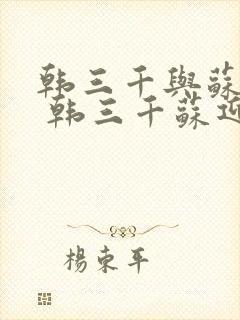 韩三千與蘇
韩三千蘇迎
楊東平